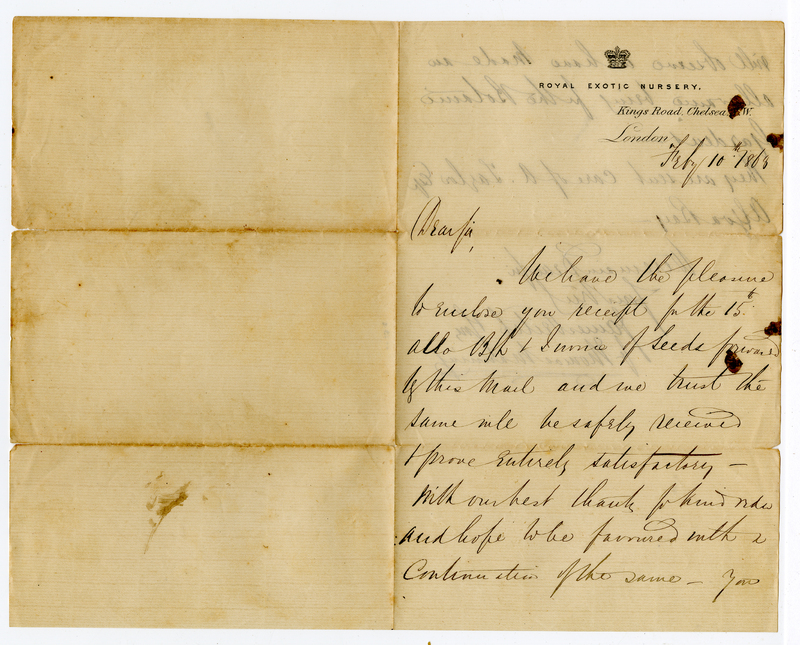 ROYAL EXOTIC NURSERY.
Kings Road, Chelsea, S.W.
London
Feby 10th 1863
Dear Sir,
We have the pleasure
to enclose you receipt for the 15th
also B/L & Invoice of Seeds forwarded
by this Mail and we trust the
same will be safely received
& prove entirely satisfactory —
With our best thanks for kind order
and hope to be favoured with a
Continuation of the same — You